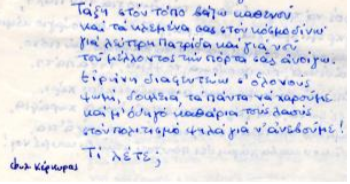 Τάξη στόν τόπο βάζω καθενού
καί τά κλεμένα σας στόν κόσμο δίνω
γιά λεύτερη Πατρίδα καί γιά νού
τού μέλλοντος τήν πόρτα σας ἀνοίγω.
Εἰρήνη διαφεντεύω σ' ὅλους
ψωμί, δουλειά, τά πάντα νά χαρούμε
καί μ' ὁδηγό καθάρια τούς λαούς
στόν πολιτισμό ψηλά γιά ν' ἀνεβούμε!
Τί λέτε;
Φυλ Κέρκυρας